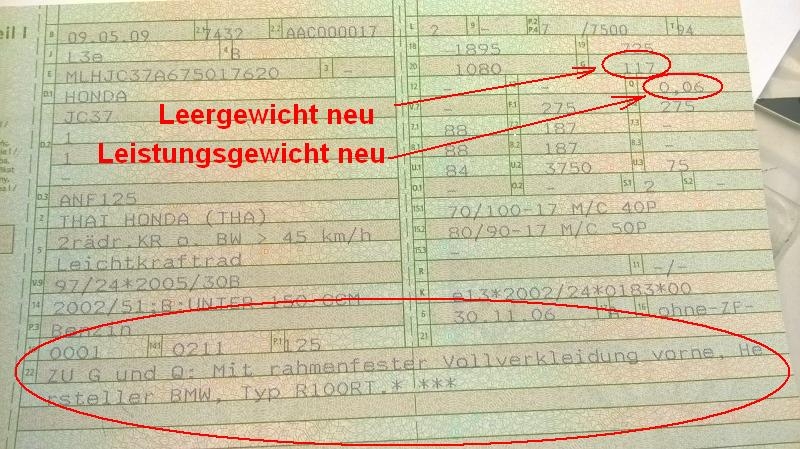 eil I
B 09.05.09 2.1 7432 2.2 AAC000017
J L3e 4 B
E MLHJC37A675017620 3 -
D.1 HONDA
JC37
D.2 1
1
-
D.3 ANF125
2 THAI HONDA (THA)
5 2rädr.KR o. BW > 45 km/h
Leichtkraftrad
V.9 97/24*2005/30B
14 2002/51;B:UNTER 150 CCM
P.3 Benzin
10 0001 14.1 0211 P.1 125
L 2 9 - P.2 P.4 7 /7500 T 94
18 1895 19 725
20 1080 G 117
12 - - Q 0,06
V.7 - F.1 275 275
7.1 88 187 7.3 -
8.1 88 187 8.3 -
U.1 84 U.2 3750 U.3 75
O.1 - O.2 - S.1 2 S.2 -
15.1 70/100-17 M/C 40P
15.2 80/90-17 M/C 50P
15.3 -
R 11 -/-
K e13*2002/24*0183*00
6 30.11.06 ohne-ZF-
21
22 ZU G und Q: Mit rahmenfester Vollverkleidung vorne, He
rsteller BMW, Typ R100RT.* ***
Leergewicht neu
Leistungsgewicht neu